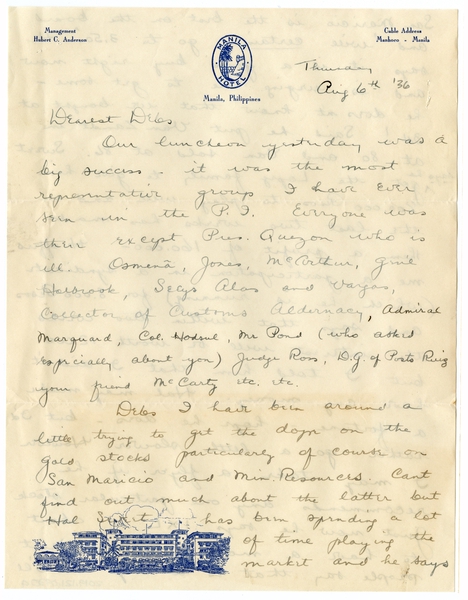 Management
Hubert C. Anderson
MANILA
HOTEL
Manila, Philippines
Cable Address
Manhoco - Manila
Thursday
Aug 6th '36
Dearest Debs
Our luncheon yesterday was a
big success - it was the most
representative group I have ever
seen in the P.I. Everyone was
their except Pres. Quezon who is
ill. Osmeña, Jones, McArthur, Gen'l
Holbrook, Secys Alas and Vargas,
Collector of Customs Aldernacy, Admiral
Marquard, Col. Mr Pond (who asked
especially about you) Judge Ross, D.G. of Posts Ruiz
your friend McCarty etc. etc.
Debs I have been around a
little trying to get the dope on the
gold stocks particularly of course on
San Maricio and Min. Resources. Cant
find out much about the latter but
Hal has been spending a lot
of time playing the
market and he says